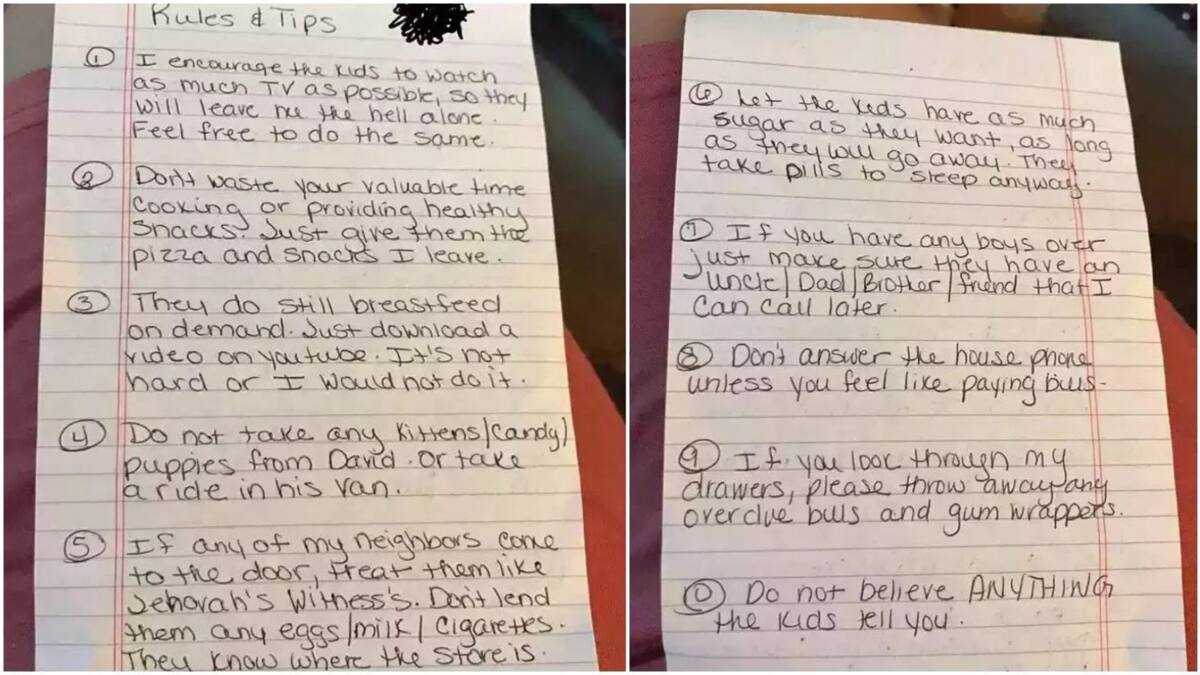 Rules & Tips
① I encourage the kids to watch
as much TV as possible, so they
will leave me the hell alone.
Feel free to do the same.
② Don't waste your valuable time
cooking or providing healthy
snacks. Just give them the
pizza and snacks I leave.
③ They do still breastfeed
on demand. Just download a
video on youtube. It's not
hard or I would not do it.
④ Do not take any kittens/candy/
puppies from David. Or take
a ride in his van.
⑤ If any of my neighbors come
to the door, treat them like
Jehovah's Witness's. Don't lend
them any eggs/milk/cigarettes.
They know where the store is.
⑥ Let the kids have as much
sugar as they want, as long
as they will go away. They
take pills to sleep anyways.
⑦ If you have any boys over
just make sure they have an
uncle/Dad/Brother/friend that I
can call later.
⑧ Don't answer the house phone
unless you feel like paying bills.
⑨ If you look through my
drawers, please throw away any
overdue bills and gum wrappers.
⑩ Do not believe ANYTHING
the kids tell you.